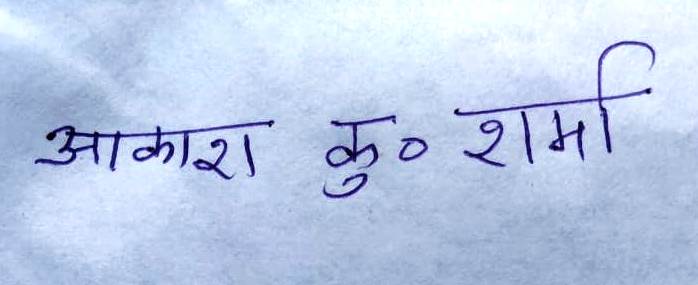 आकाश कु० शर्मा